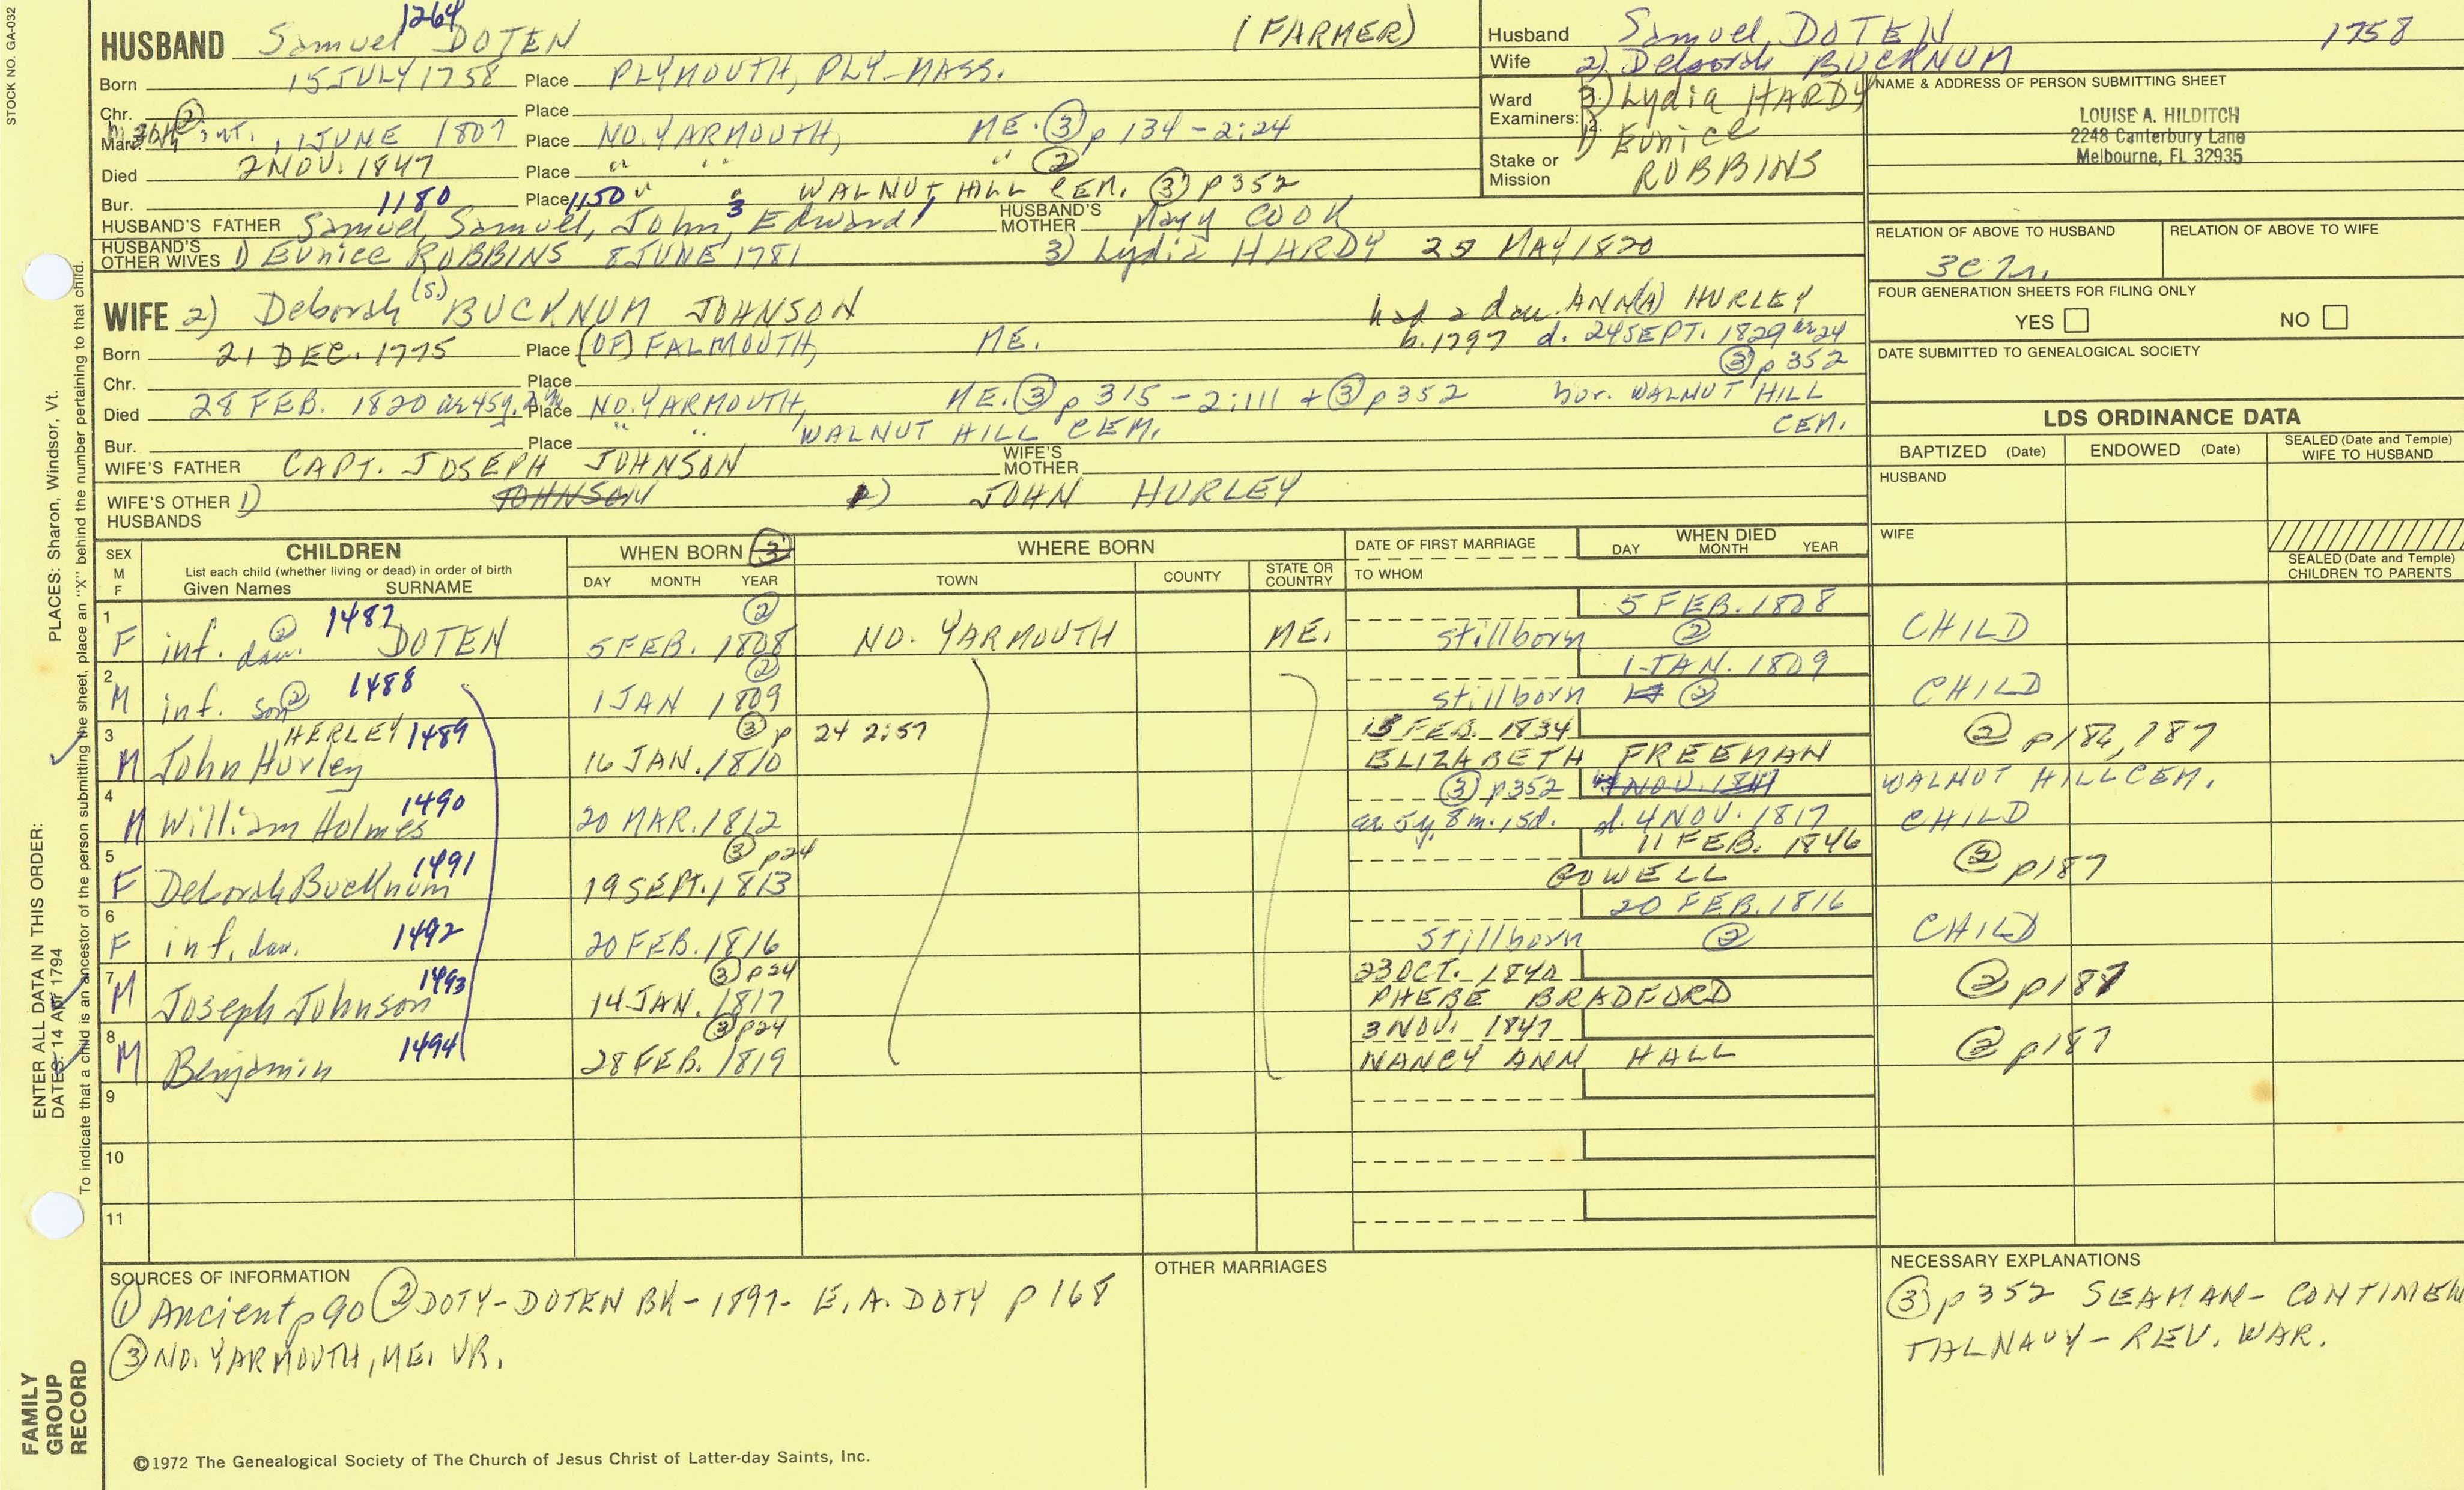 STOCK NO. GA-032
1264
HUSBAND Samuel DOTEN (FARMER)
Born 15 JULY 1758 Place PLYMOUTH, PLY-MASS.
Chr. Place
Marr. int. ②, 1 JUNE 1807 Place NO. YARMOUTH, ME. ③ p 134-2:24
Died 2 NOV. 1847 Place " " " ②
Bur. Place " " WALNUT HILL CEM. ③ p352
1180 1150 3 1
HUSBAND'S FATHER Samuel, Samuel, John, Edward HUSBAND'S MOTHER Mary COOK
HUSBAND'S OTHER WIVES 1) Eunice ROBBINS 8 JUNE 1781 3) Lydia HARDY 25 MAY 1820
WIFE 2) Deborah (S.) BUCKNUM JOHNSON
had a dau. ANN(A) HURLEY
b. 1797 d. 24 SEPT. 1829
③ p 352
bur. WALNUT HILL CEM.
Born 21 DEC. 1775 Place (OF) FALMOUTH, ME.
Chr. Place
Died 28 FEB. 1820 ae 45y. Place NO. YARMOUTH, ME. ③ p 315-2:111 + ③ p352
Bur. Place " " WALNUT HILL CEM.
WIFE'S FATHER CAPT. JOSEPH JOHNSON WIFE'S MOTHER
WIFE'S OTHER HUSBANDS 1) JOHNSON ) JOHN HURLEY
Husband Samuel DOTEN 1758
Wife 2) Deborah BUCKNUM
Ward Examiners: 3) Lydia HARDY
1) Eunice
Stake or Mission ROBBINS
NAME & ADDRESS OF PERSON SUBMITTING SHEET
LOUISE A. HILDITCH
2248 Canterbury Lane
Melbourne, FL 32935
RELATION OF ABOVE TO HUSBAND RELATION OF ABOVE TO WIFE
FOUR GENERATION SHEETS FOR FILING ONLY
YES NO
DATE SUBMITTED TO GENEALOGICAL SOCIETY
LDS ORDINANCE DATA
BAPTIZED (Date) ENDOWED (Date) SEALED (Date and Temple) WIFE TO HUSBAND
HUSBAND
WIFE
SEALED (Date and Temple) CHILDREN TO PARENTS
SEX M F
CHILDREN
List each child (whether living or dead) in order of birth
Given Names SURNAME
WHEN BORN ③
DAY MONTH YEAR
WHERE BORN
TOWN COUNTY STATE OR COUNTRY
DATE OF FIRST MARRIAGE
TO WHOM
WHEN DIED
DAY MONTH YEAR
1 F inf. dau. ② 1487 DOTEN 5 FEB. 1808 ② NO. YARMOUTH ME. stillborn 5 FEB. 1808 ② CHILD
2 M inf. son ② 1488 1 JAN 1809 ② stillborn 1 JAN. 1809 ② CHILD
3 M John Hurley HERLEY 1489 16 JAN. 1810 ③ p 24 2:57 13 FEB. 1834 ELIZABETH FREEMAN ② p186, 187
4 M William Holmes 1490 20 MAR. 1812 ③ p352 ae 5y. 8m. 15d. d. 4 NOV. 1817 WALNUT HILL CEM. CHILD
5 F Deborah Bucknum 1491 19 SEPT. 1813 ③ p24 11 FEB. 1846 POWELL ② p187
6 F inf. dau. 1492 20 FEB. 1816 stillborn 20 FEB. 1816 ② CHILD
7 M Joseph Johnson 1493 14 JAN. 1817 ③ p24 23 OCT. 1840 PHEBE BRADFORD ② p187
8 M Benjamin 1494 28 FEB. 1819 ③ p24 3 NOV. 1847 NANCY ANN HALL ② p187
9
10
11
SOURCES OF INFORMATION
① Ancient p90 ② DOTY-DOTEN BK-1897- E.A. DOTY p 168
③ NO. YARMOUTH, ME. VR.
OTHER MARRIAGES
NECESSARY EXPLANATIONS
③ p 352 SEAMAN- CONTINEN
TAL NAVY- REV. WAR.
©1972 The Genealogical Society of The Church of Jesus Christ of Latter-day Saints, Inc.
FAMILY GROUP RECORD
ENTER ALL DATA IN THIS ORDER:
DATES: 14 APR 1794
PLACES: Sharon, Windsor, Vt.
To indicate that a child is an ancestor of the person submitting the sheet, place an "X" behind the number pertaining to that child.